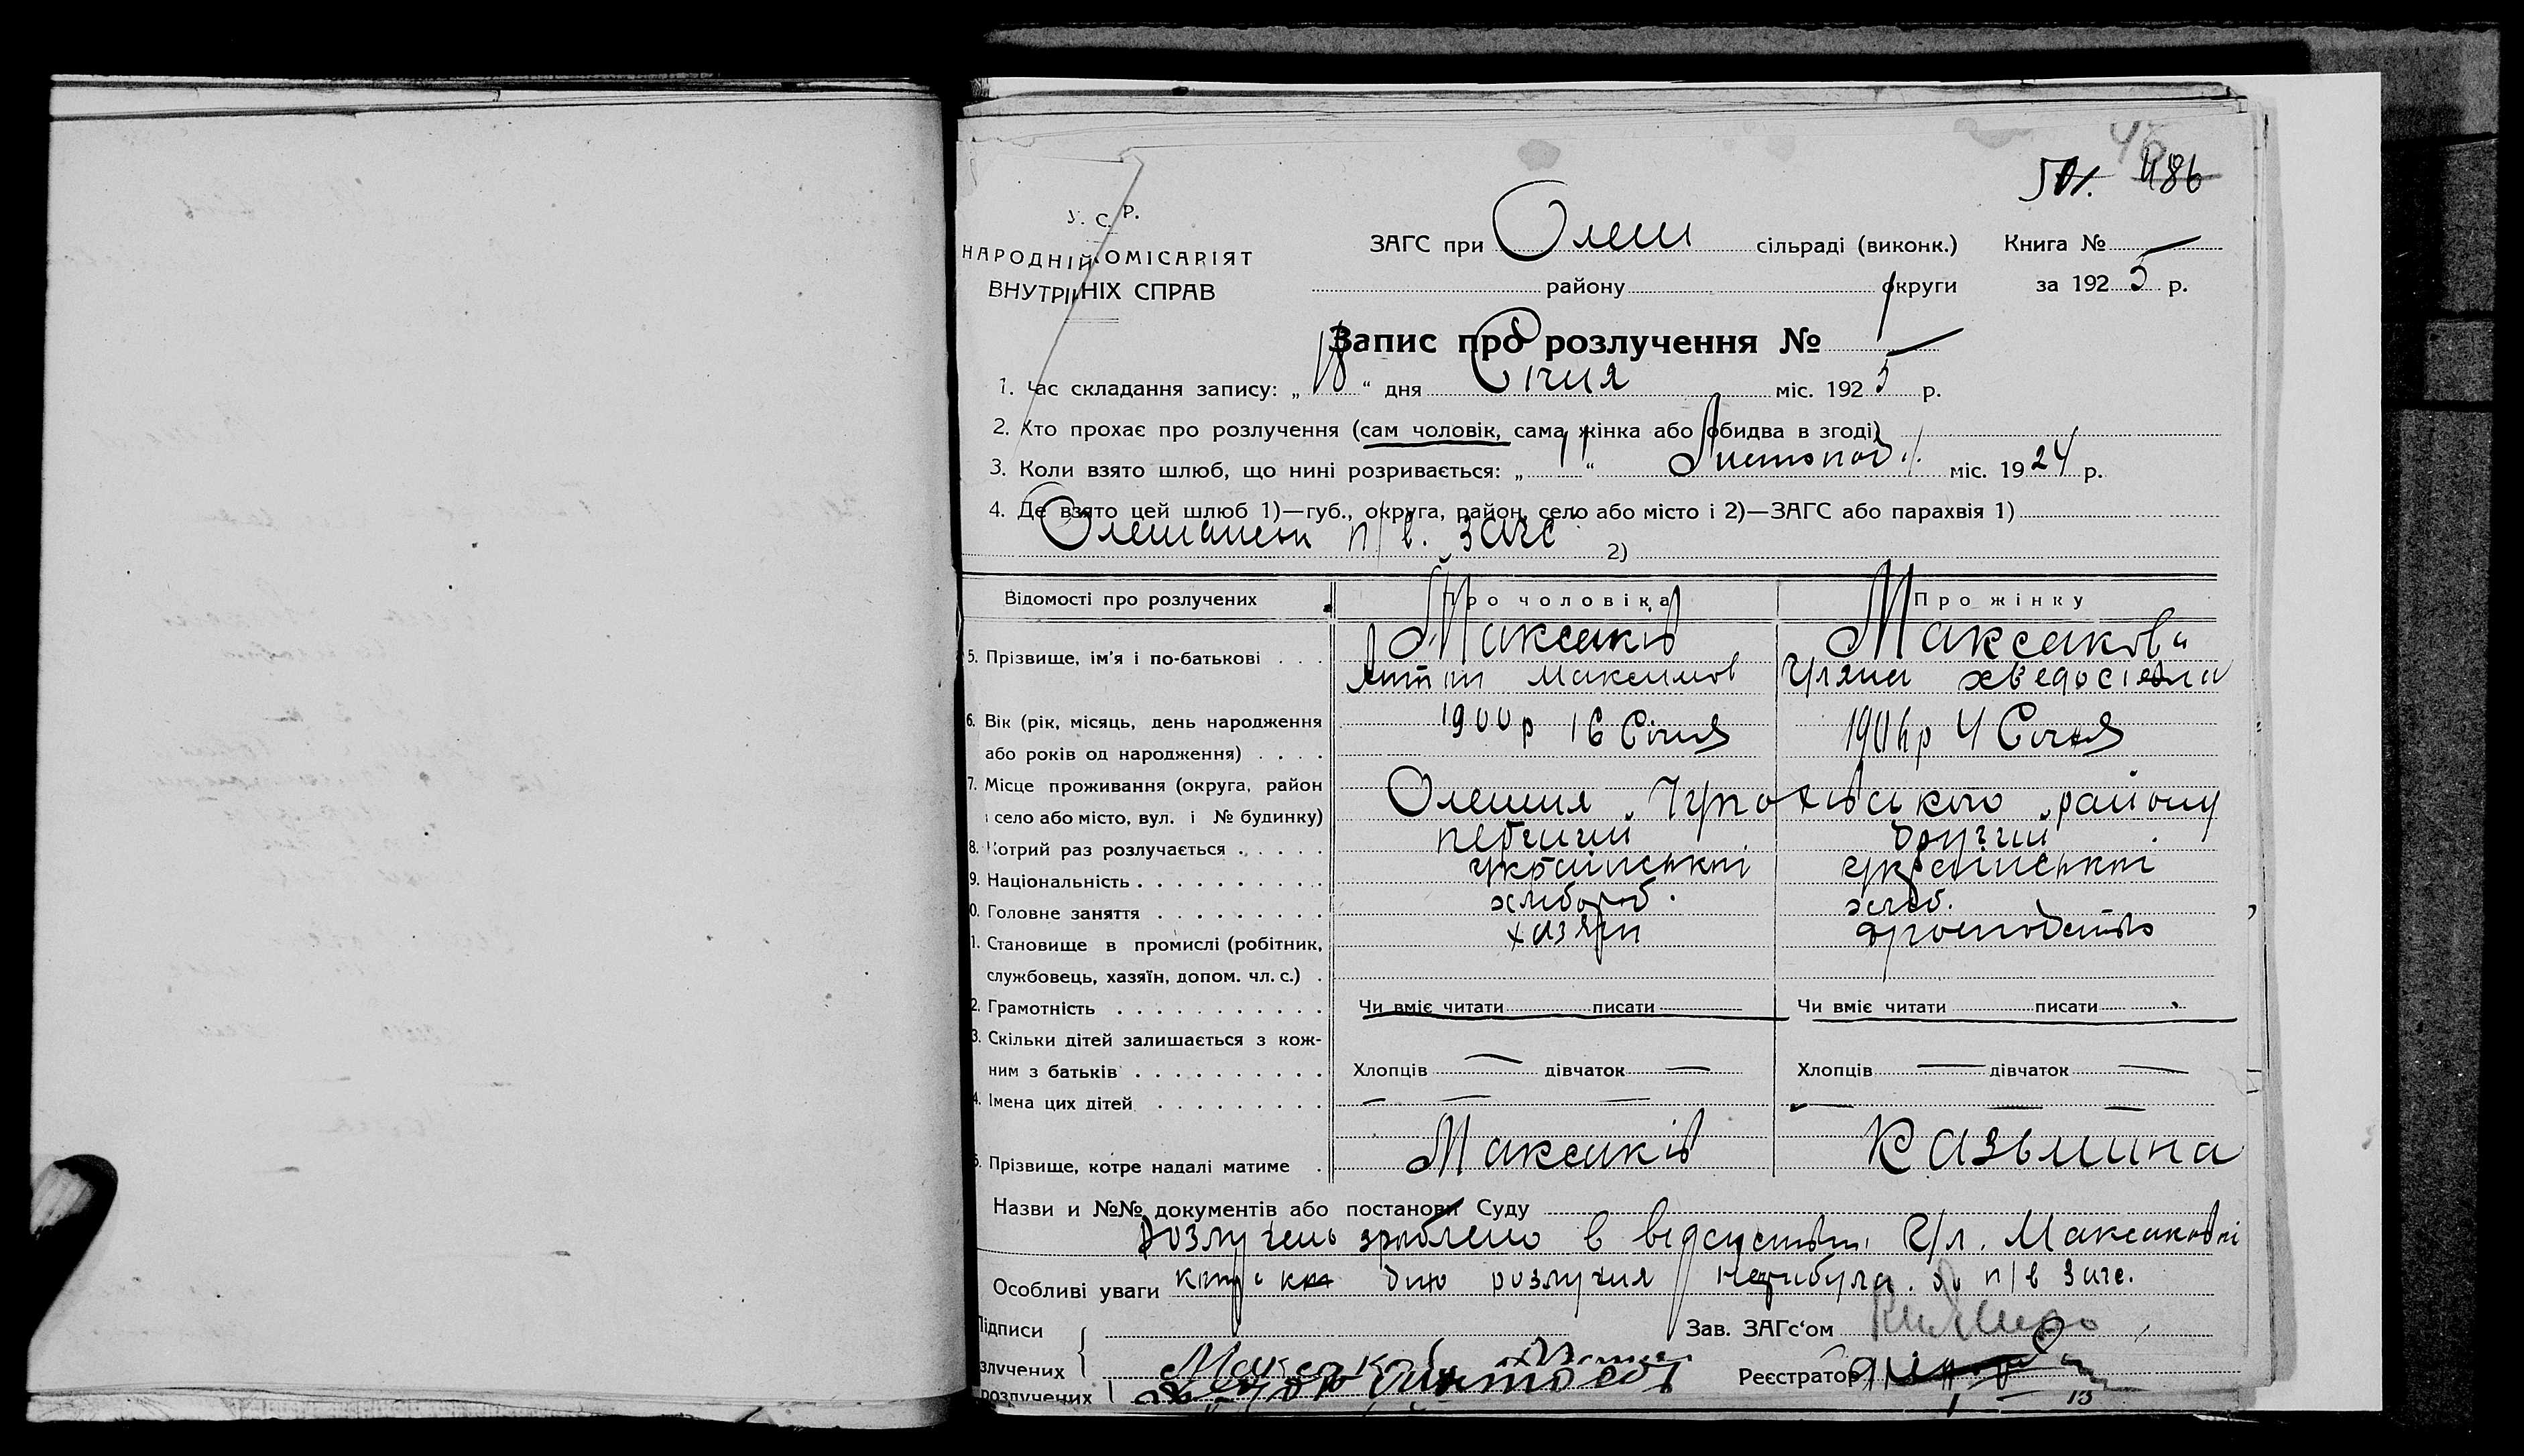 46
486
У. С. Р.
НАРОДНІЙ КОМІСАРІЯТ
ВНУТРІШНІХ СПРАВ
ЗАГС при Олеш сільраді (виконк.) Книга № —
району округи за 1925 р.
Запис про розлучення № —
1. Час складання запису: „18“ дня Січня міс. 1925 р.
2. Хто прохає про розлучення (сам чоловік, сама жінка або обидва в згоді)
3. Коли взято шлюб, що нині розривається: „ “ Листопад міс. 1924 р.
4. Де взято цей шлюб 1)—губ., округа, район, село або місто і 2)—ЗАГС або парахвія 1)
п/в. Загс 2)
Відомості про розлучених Про чоловіка Про жінку
5. Прізвище, ім'я і по-батькові . . . Максаків Максакова
Антін Максимов Уляна
6. Вік (рік, місяць, день народження 1900 р 16 Січня 4 Січня
або років од народження) . . . .
7. Місце проживання (округа, район Олешня, району
село або місто, вул. і № будинку)
8. Котрий раз розлучається . . . . . перший другий
9. Національність . . . . . . . . . .
0. Головне заняття . . . . . . . . . хлібороб. хліб.
1. Становище в промислі (робітник, хазяїн
службовець, хазяїн, допом. чл. с.) .
2. Грамотність . . . . . . . . . . . Чи вміє читати писати Чи вміє читати писати
3. Скільки дітей залишається з кож-
ним з батьків . . . . . . . . . . Хлопців — дівчаток — Хлопців — дівчаток —
4. Імена цих дітей . . . . . . . . . — — — — — —
5. Прізвище, котре надалі матиме . Максаків Казьмина
Назви и №№ документів або постанови Суду
зроблено в г/л. Максакової
Особливі уваги розлучня п/в Загс.
Підписи Зав. ЗАГс‘ом
злучених Максаков
Реєстратор
розлучених